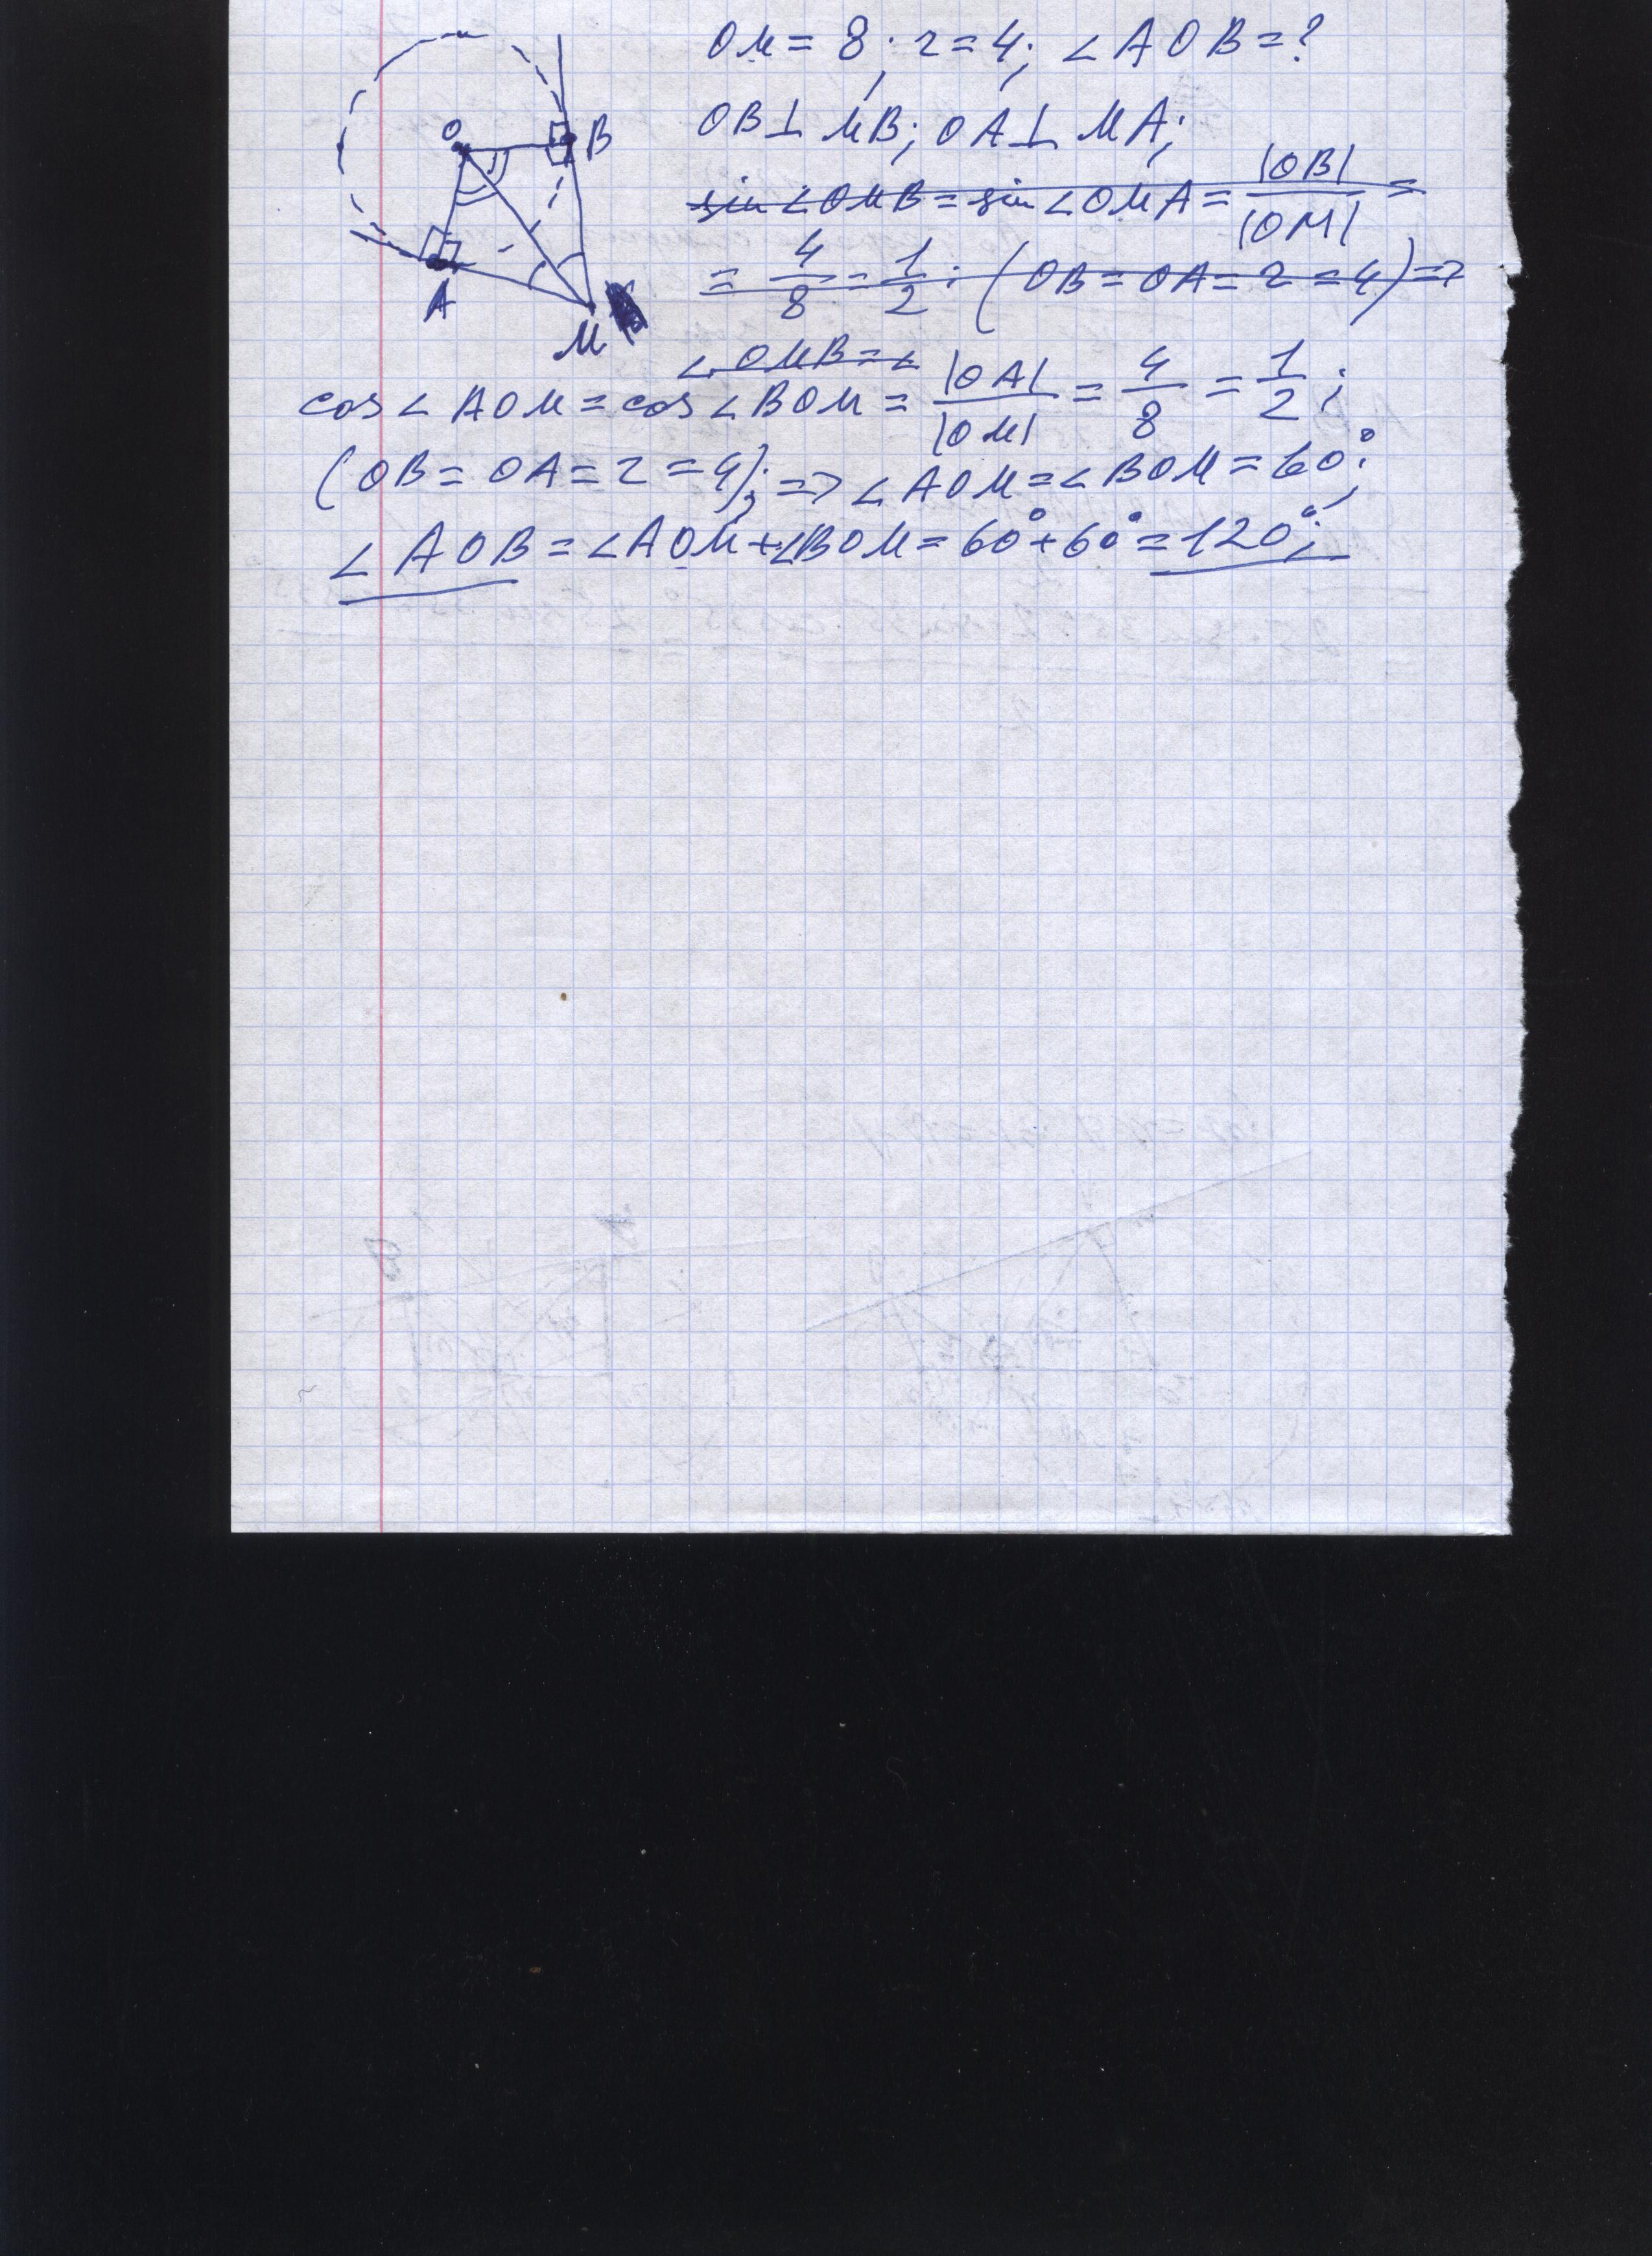 O
B
A
M
OM = 8; r = 4; ∠AOB = ?
OB ⊥ MB; OA ⊥ MA;
sin ∠OMB = sin ∠OMA = |OB| / |OM| =
= 4/8 = 1/2; (OB = OA = r = 4) =>
∠OMB = ∠
cos ∠AOM = cos ∠BOM = |OA| / |OM| = 4/8 = 1/2;
(OB = OA = r = 4); => ∠AOM = ∠BOM = 60°;
∠AOB = ∠AOM + ∠BOM = 60° + 60° = 120°;